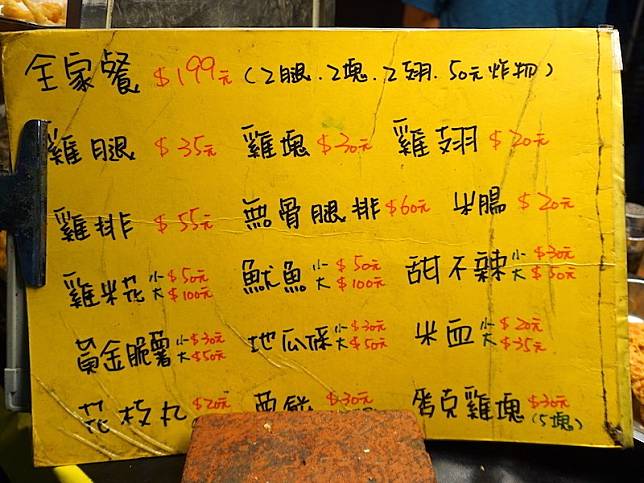 全家餐 $199元 (2腿.2塊.2翅.50元炸物)
雞腿 $35元 雞塊 $30元 雞翅 $20元
雞排 $55元 無骨腿排 $60元 米腸 $20元
雞米花 小 $50元 大 $100元 魷魚 小 $50元 大 $100元 甜不辣 小 $30元 大 $50元
黃金脆薯 小 $30元 大 $50元 地瓜條 小 $30元 大 $50元 米血 小 $20元 大 $35元
花枝丸 $20元 $30元 麥克雞塊 $30元 (5塊)